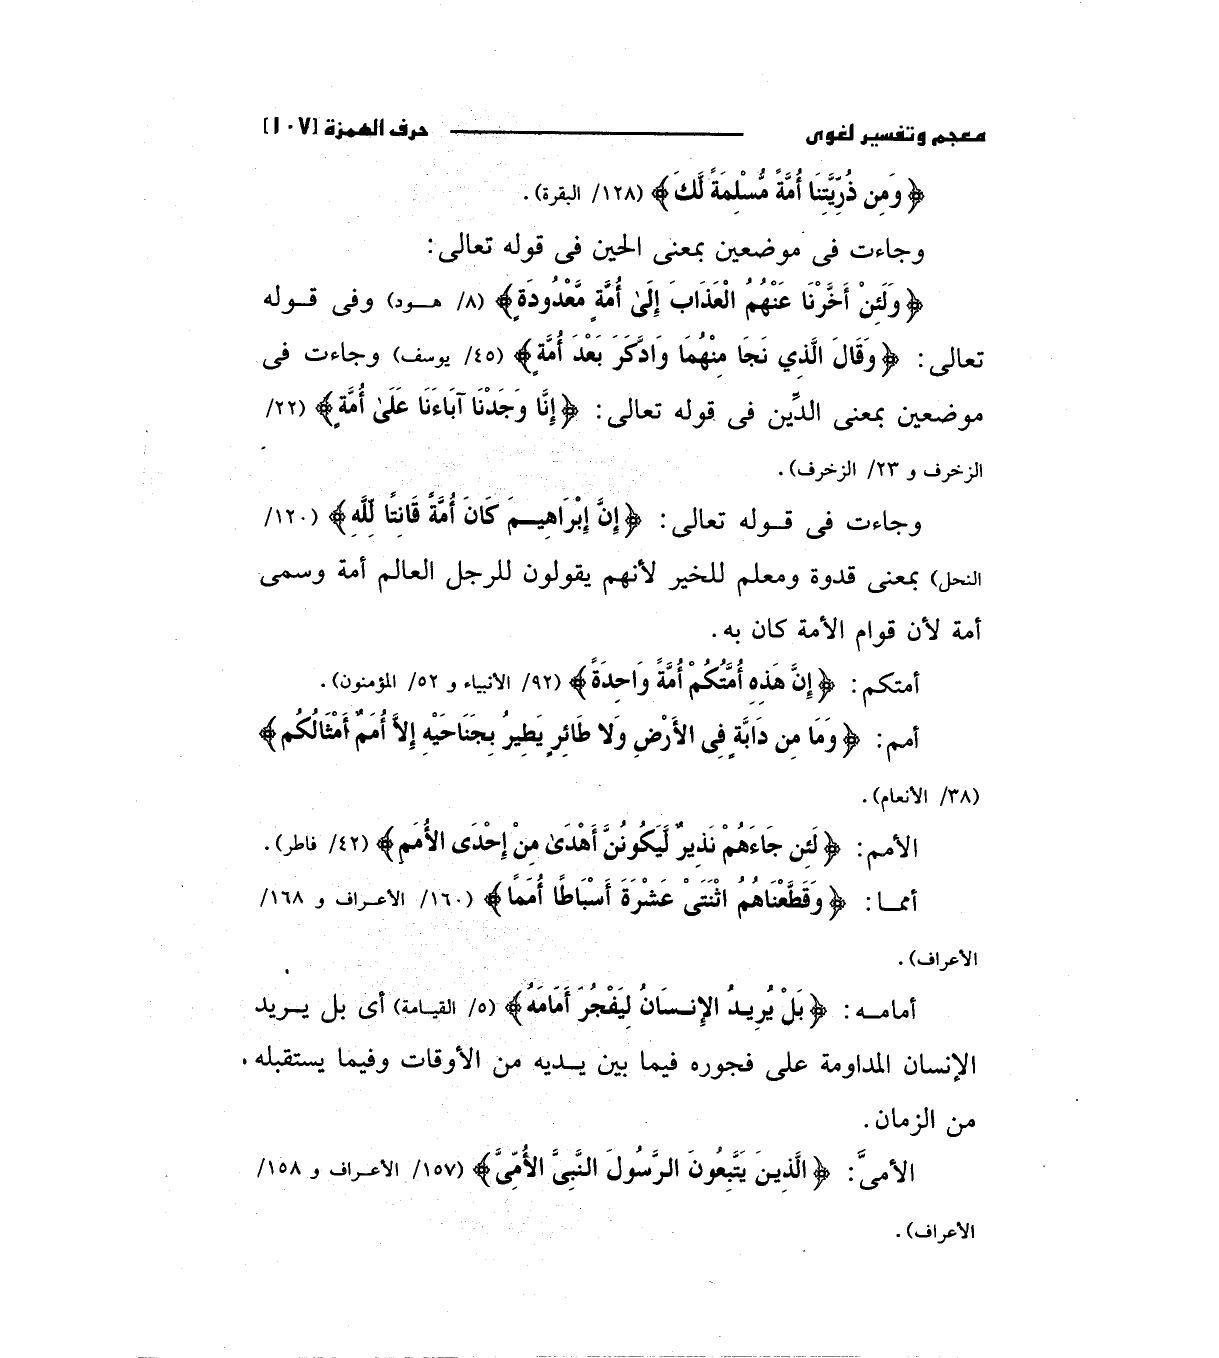 معجم وتفسير لغوى حرف الهمزة [١٠٧]
﴿وَمِن ذُرِّيَّتِنَا أُمَّةً مُّسْلِمَةً لَّكَ﴾ (١٢٨/ البقرة).
وجاءت فى موضعين بمعنى الحين فى قوله تعالى:
﴿وَلَئِنْ أَخَّرْنَا عَنْهُمُ الْعَذَابَ إِلَىٰ أُمَّةٍ مَّعْدُودَةٍ﴾ (٨/ هود) وفى قوله
تعالى: ﴿وَقَالَ الَّذِي نَجَا مِنْهُمَا وَادَّكَرَ بَعْدَ أُمَّةٍ﴾ (٤٥/ يوسف) وجاءت فى
موضعين بمعنى الدِّين فى قوله تعالى: ﴿إِنَّا وَجَدْنَا آبَاءَنَا عَلَىٰ أُمَّةٍ﴾ (٢٢/
الزخرف و ٢٣/ الزخرف).
وجاءت فى قوله تعالى: ﴿إِنَّ إِبْرَاهِيمَ كَانَ أُمَّةً قَانِتًا لِّلَّهِ﴾ (١٢٠/
النحل) بمعنى قدوة ومعلم للخير لأنهم يقولون للرجل العالم أمة وسمى
أمة لأن قوام الأمة كان به.
أمتكم: ﴿إِنَّ هَذِهِ أُمَّتُكُمْ أُمَّةً وَاحِدَةً﴾ (٩٢/ الأنبياء و ٥٢/ المؤمنون).
أمم: ﴿وَمَا مِن دَابَّةٍ فِى الأَرْضِ وَلا طَائِرٍ يَطِيرُ بِجَنَاحَيْهِ إِلاَّ أُمَمٌ أَمْثَالُكُم﴾
(٣٨/ الأنعام).
الأمم: ﴿لَئِن جَاءَهُمْ نَذِيرٌ لَّيَكُونُنَّ أَهْدَىٰ مِنْ إِحْدَى الأُمَمِ﴾ (٤٢/ فاطر).
أمما: ﴿وَقَطَّعْنَاهُمُ اثْنَتَىْ عَشْرَةَ أَسْبَاطًا أُمَمًا﴾ (١٦٠/ الأعراف و ١٦٨/
الأعراف).
أمامه: ﴿بَلْ يُرِيدُ الإِنسَانُ لِيَفْجُرَ أَمَامَهُ﴾ (٥/ القيامة) أى بل يريد
الإنسان المداومة على فجوره فيما بين يديه من الأوقات وفيما يستقبله.
من الزمان.
الأمىَّ: ﴿الَّذِينَ يَتَّبِعُونَ الرَّسُولَ النَّبِىَّ الأُمِّىَّ﴾ (١٥٧/ الأعراف و ١٥٨/
الأعراف).